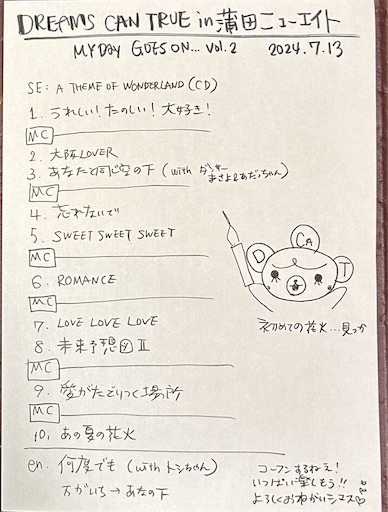 DREAMS CAN TRUE in 蒲田ニューエイト
MY DAY GOES ON... vol.2 2024.7.13
SE: A THEME OF WONDERLAND (CD)
1. うれしい!たのしい!大好き!
MC
2. 大阪LOVER
3. あなたと同じ空の下 (with ダンサー
まさよ&あだっちゃん)
MC
4. 忘れないで
5. SWEET SWEET SWEET
MC
6. ROMANCE
MC
7. LOVE LOVE LOVE
8. 未来予想図Ⅱ
MC
9. 愛がたどりつく場所
MC
10. あの夏の花火
D CA T
初めての花火...見っか
en. 何度でも (with トシちゃん)
万がいち→あなの下
コーフンするねぇ!
いっぱい楽しもう!!
よろしくおねがいシマス♡